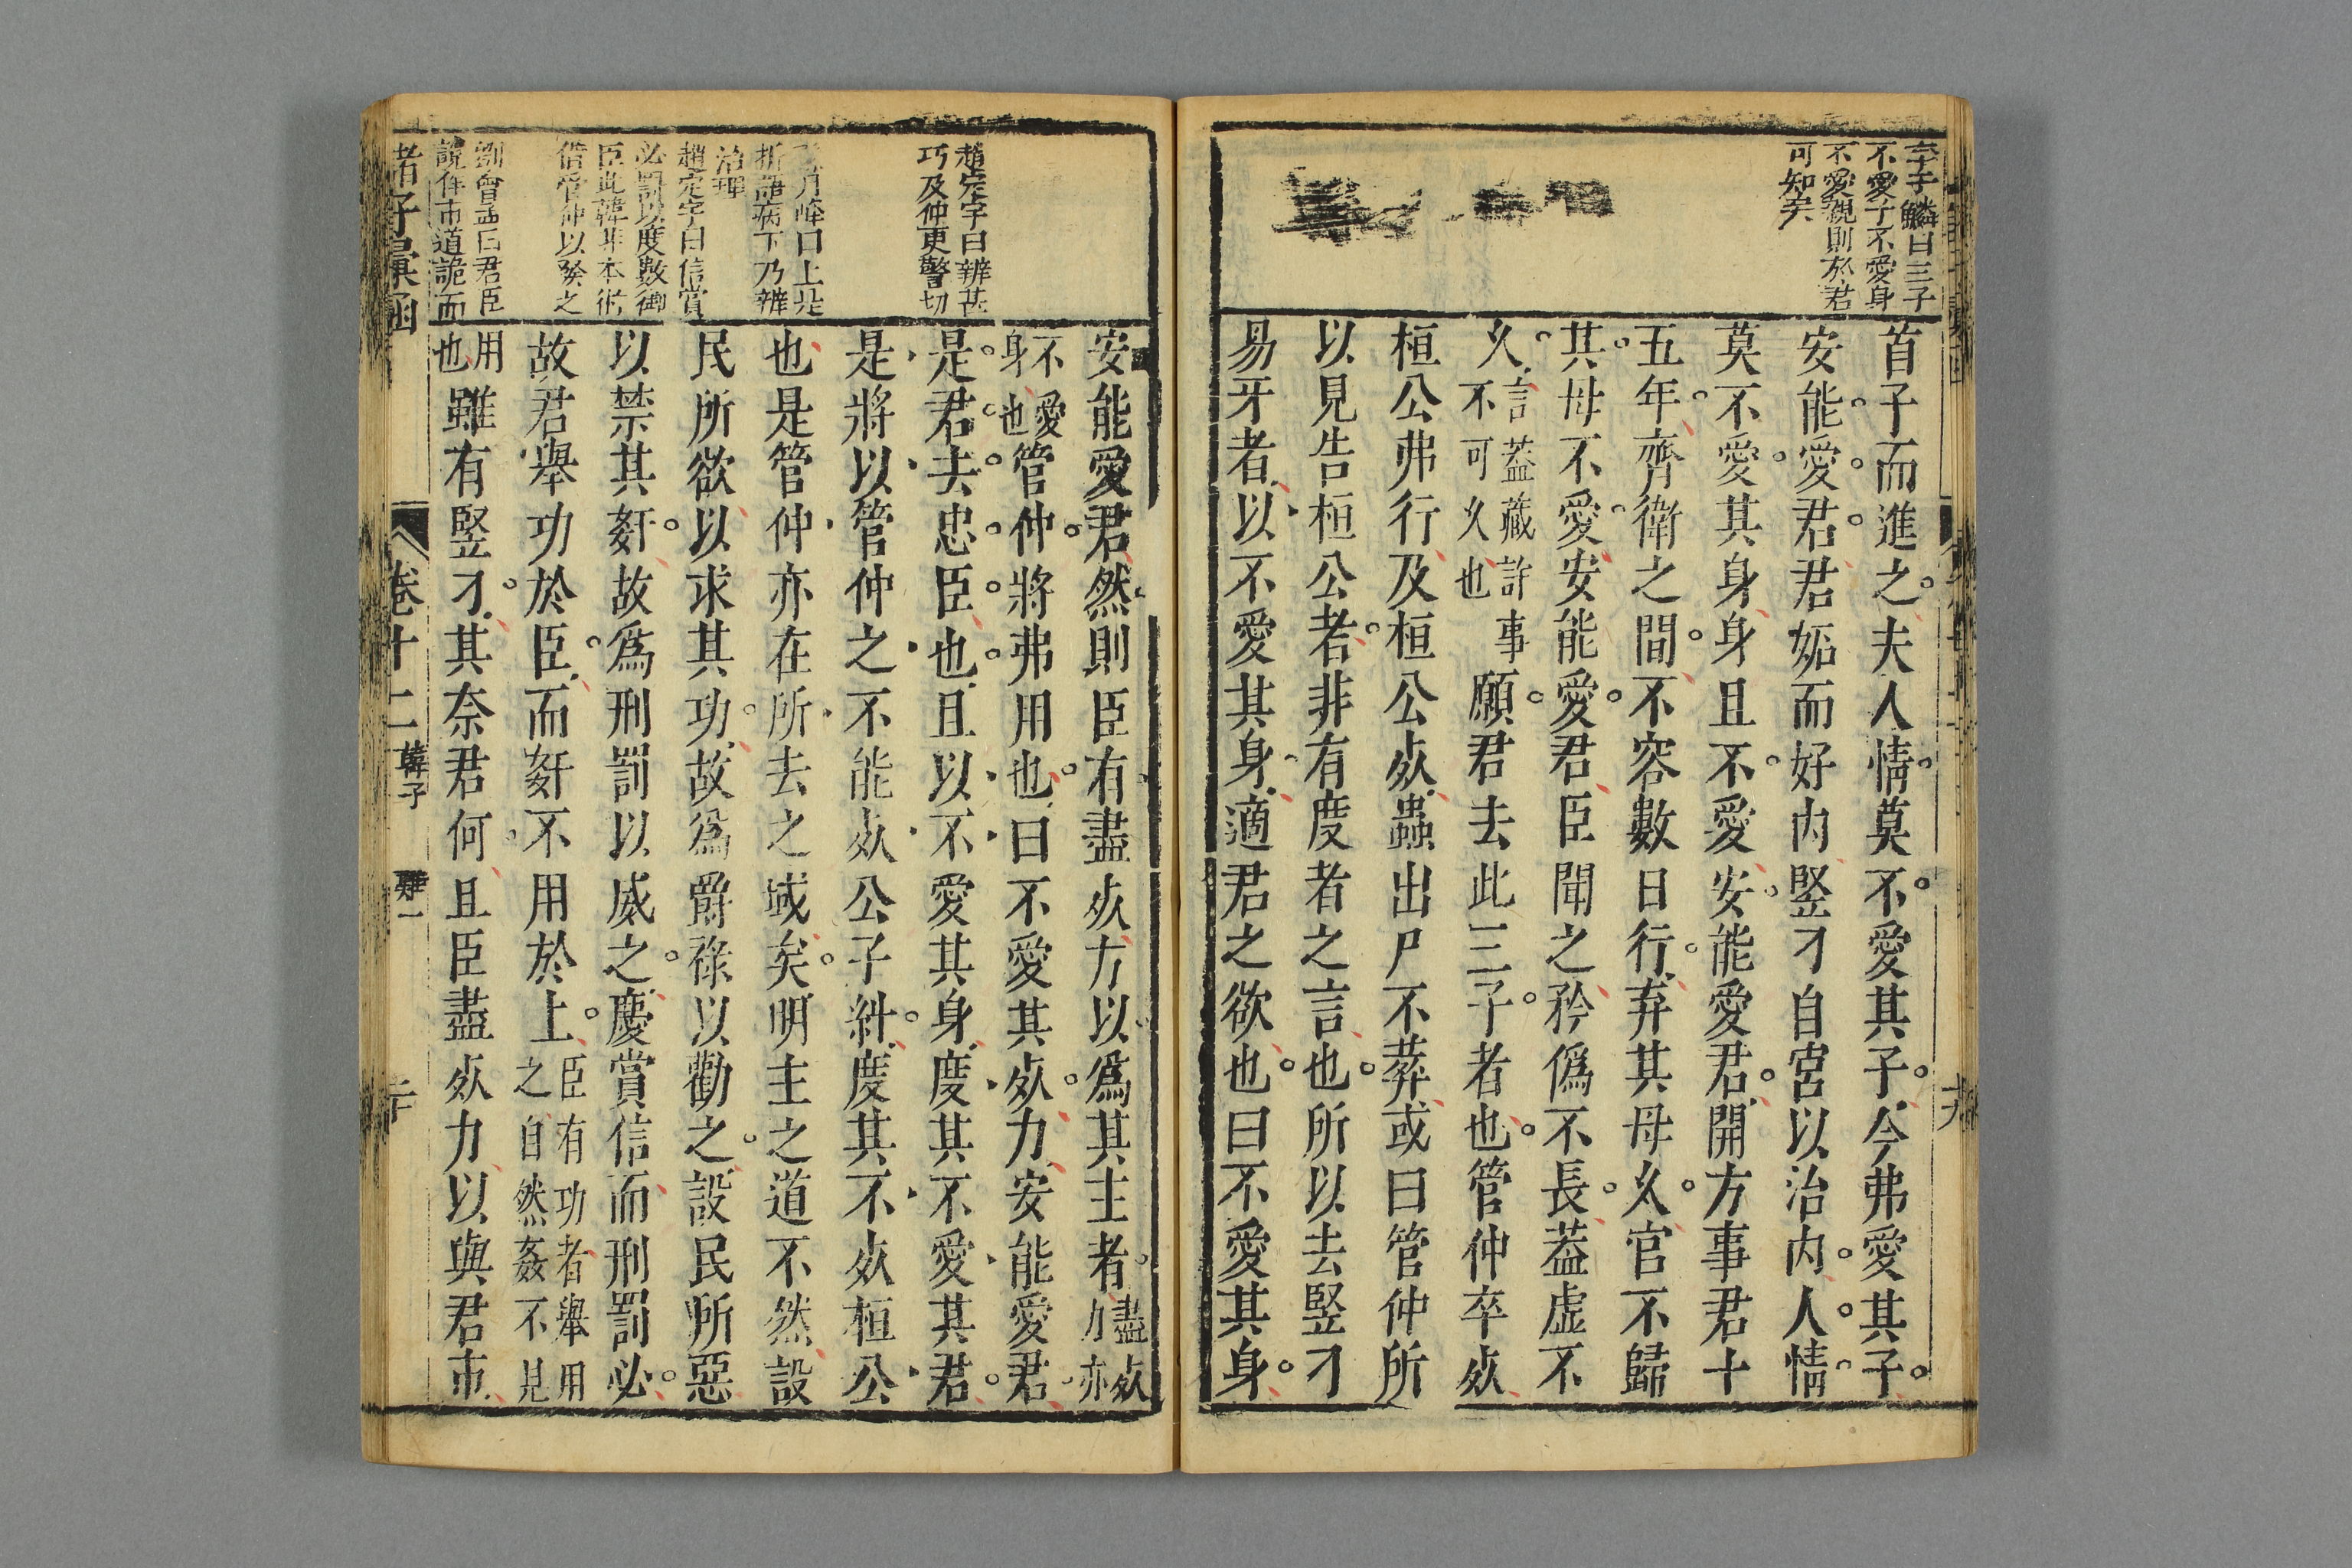 李于鱗曰三子
不愛子不愛身
不愛親則於君
可知矣
首子而進之夫人情莫不愛其子今弗愛其子
安能愛君君妬而好內豎刁自宮以治內人情
莫不愛其身身且不愛安能愛君開方事君十
五年齊衛之間不容數日行弃其母久官不歸
其母不愛安能愛君臣聞之矜僞不長葢虛不
久言葢藏詐事不可久也願君去此三子者也管仲卒䏖
桓公弗行及桓公䏖蟲出尸不葬或曰管仲所
以見告桓公者非有度者之言也所以去豎刁
易牙者以不愛其身適君之欲也曰不愛其身
趙定宇曰辨甚
巧及仲更警切
月峰曰上是
折語病下乃辨
治理
趙定宇曰信賞
必罰以度數御
臣此韓非本術
借管仲以發之
劉會孟曰君臣
說作市道詭而
安能愛君然則臣有盡䏖力以爲其主者盡䏖力亦
不愛身也管仲將弗用也曰不愛其䏖力安能愛君
是君去忠臣也且以不愛其身度其不愛其君
是將以管仲之不能䏖公子糾度其不䏖桓公
也是管仲亦在所去之域矣明主之道不然設
民所欲以求其功故爲爵祿以勸之設民所惡
以禁其姧故爲刑罰以威之慶賞信而刑罰必
故君舉功於臣而姧不用於上臣有功者舉用之自然姦不見
用也雖有豎刁其奈君何且臣盡䏖力以與君市
諸子彙函
卷十二
韓子
難一
二十
十九